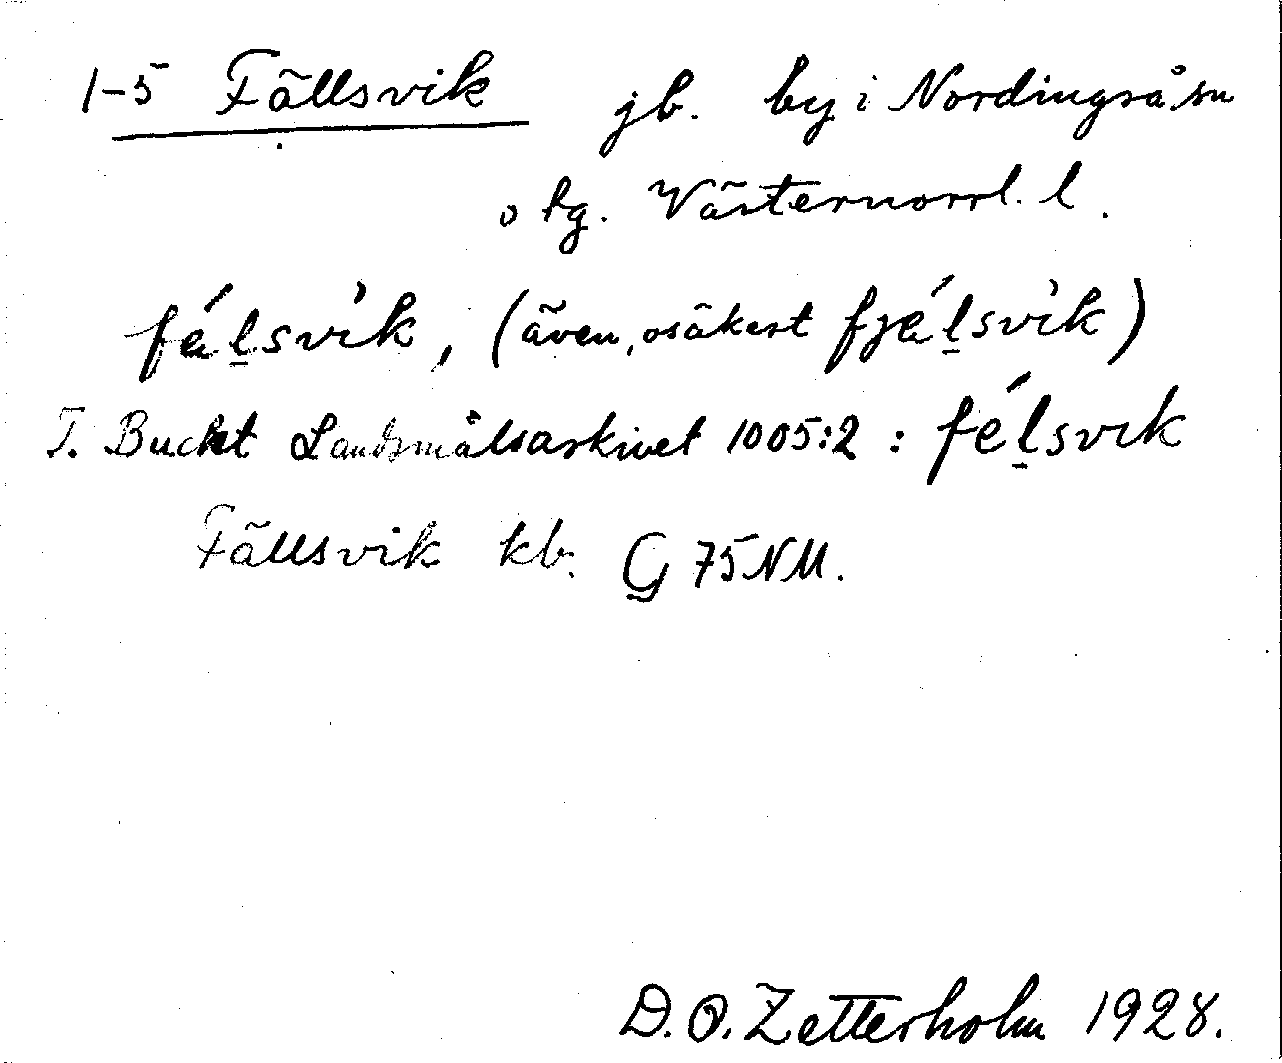 1-5 Fällsvik jb. by i Nordingrå sn
o tg. Västernorrl. l.
félsvìk, (även, osäkert fjélsvìk)
T. Bucht Landsmålsarkivet 1005:2 : félsvik
Fällsvik kb. G 75 NM.
D. O. Zetterholm 1928.